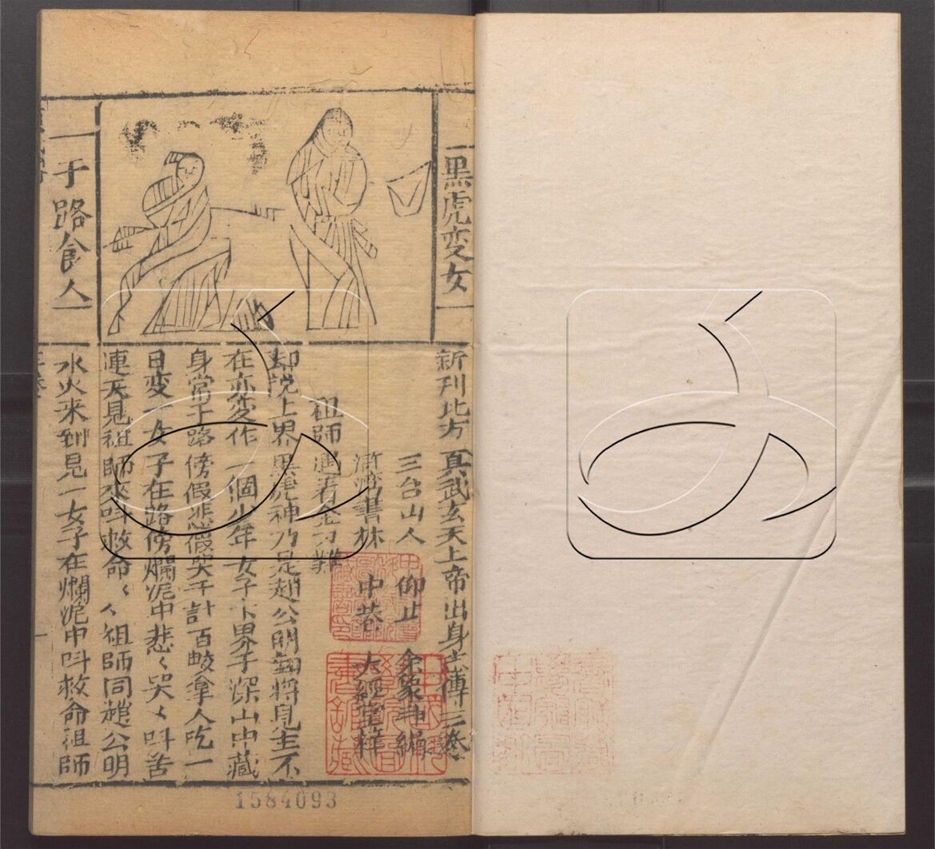 黑虎变女
于路食人
新刊北方真武玄天上帝出身志傳三卷
三台山人 仰止 余象斗編
書林 中巷 大經堂梓
祖師遇着
却說上界黑虎神乃是趙公明 將見主不
在亦变作一個少年女子下界于深山中藏
身常于路傍假悲假哭千計百 拿人吃一
日变一女子在路傍爛泥中悲〻哭〻叫苦
連天見祖師來叫救命〻〻祖師同趙公明
水火來到見一女子在爛泥中叫救命祖師
一
1584093